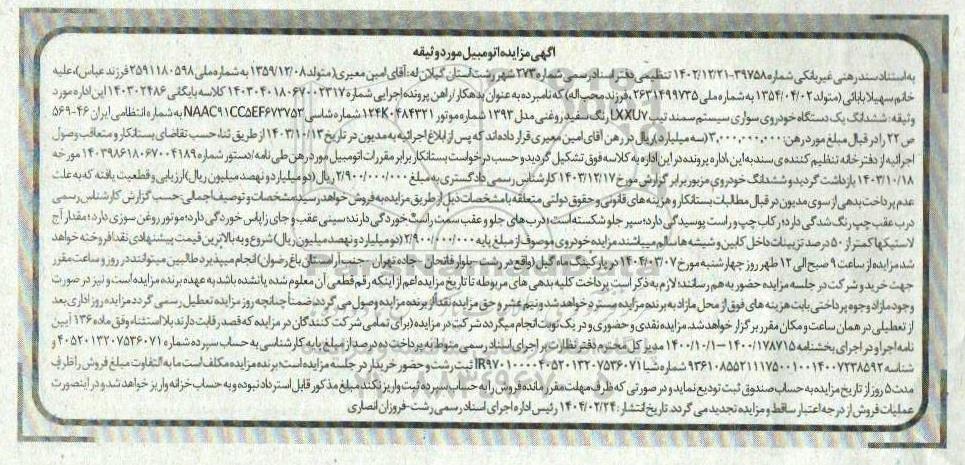 آگهی مزایده اتومبیل مورد وثیقه
به استناد سند رهنی غیر بانکی شماره ۳۹۷۵۸-۱۴۰۲/۱۲/۲۱ تنظیمی دفتر اسناد رسمی شماره ۲۷۳ شهر رشت استان گیلان له: آقای امین معیری (متولد ۱۳۵۹/۱۲/۰۸ به شماره ملی ۲۵۹۱۱۸۰۵۹۸ فرزند عباس)، علیه
خانم سهیلا بابائی (متولد ۱۳۵۴/۰۴/۰۲ به شماره ملی ۲۶۳۱۴۹۹۷۳۵، فرزند محب اله) که نامبرده به عنوان بدهکار/راهن پرونده اجرایی شماره ۱۴۰۳۰۴۰۱۸۰۶۷۰۰۲۳۱۷ کلاسه بایگانی ۱۴۰۳۰۲۴۸۶ این اداره مورد
وثیقه: ششدانگ یک دستگاه خودروی سواری سیستم سمند تیپ LXXU7 رنگ سفید روغنی مدل ۱۳۹۳ شماره موتور ۱۲۴K۰۴۸۴۴۳۱ شماره شاسی NAAC۹۱CC۵EF۶۷۳۷۵۳ به شماره انتظامی ایران ۴۶-۵۶۹
ص ۲۲ را در قبال مبلغ مورد رهن: ۳,۰۰۰,۰۰۰,۰۰۰ (سه میلیارد) ریال در رهن آقای امین معیری قرار داده اند که پس از ابلاغ اجرائیه به مدیون در تاریخ ۱۴۰۳/۱۰/۱۳ از طریق ثنا، حسب تقاضای بستانکار و متعاقب وصول
اجرائیه از دفترخانه تنظیم کننده ی سند به این اداره پرونده در این اداره به کلاسه فوق تشکیل گردید و حسب درخواست بستانکار برابر مقررات اتومبیل مورد رهن طی نامه/دستور شماره ۱۴۰۳۹۸۶۱۸۰۶۷۰۰۴۱۸۹ مورخه
۱۴۰۳/۱۰/۱۸ بازداشت گردید و ششدانگ خودروی مزبور برابر گزارش مورخ ۱۴۰۳/۱۲/۱۷ کارشناس رسمی دادگستری به مبلغ ۲/۹۰۰/۰۰۰/۰۰۰ ریال (دو میلیارد و نهصد میلیون ریال) ارزیابی و قطعیت یافته که به علت
عدم پرداخت بدهی از سوی مدیون در قبال مطالبات بستانکار و هزینه های قانونی و حقوق دولتی متعلقه با مشخصات ذیل از طریق مزایده به فروش خواهد رسید مشخصات و توصیف اجمالی: حسب گزارش کارشناس رسمی
درب عقب چپ رنگ شدگی دارد؛ رکاب چپ و راست پوسیدگی دارد؛ سپر جلو شکسته است؛ (درب های جلو و عقب سمت راست خوردگی دارند؛ سینی عقب و جای زاپاس خوردگی دارد؛ موتور روغن سوزی دارد؛ مقدار آج
لاستیکها کمتر از ۵۰ درصد تزیینات داخل کابین و شیشه ها سالم میباشند مزایده خودروی موصوف از مبلغ پایه ۲/۹۰۰/۰۰۰/۰۰۰ (دو میلیارد و نهصد میلیون ریال) شروع و به بالاترین قیمت پیشنهادی نقدا فروخته خواهد
شد مزایده از ساعت ۹ صبح الی ۱۲ ظهر روز چهارشنبه مورخ ۱۴۰۴/۰۳/۰۷ در پارکینگ ماه گیل (واقع در رشت - بلوار فاتحان - جاده تهران - جنب آراستان باغ رضوان) انجام میپذیرد طالبین میتوانند در روز و ساعت مقرر
جهت خرید و شرکت در جلسه مزایده حضور به هم رسانند؛ لازم به ذکر است پرداخت کلیه بدهی های مربوطه تا تاریخ مزایده اعم از اینکه رقم قطعی آن معلوم شده یا نشده باشد به عهده برنده مزایده است و نیز در صورت
وجود مازاد وجوه پرداختی بابت هزینه های فوق از محل مازاد به برنده مزایده مسترد خواهد شد و نیم عشر و حق مزایده نقدا از برنده مزایده وصول می گردد. ضمناً چنانچه روز مزایده تعطیل رسمی گردد مزایده روز اداری بعد
از تعطیلی در همان ساعت و مکان مقرر برگزار خواهد شد. مزایده نقدی و حضوری و در یک نوبت انجام میگردد شرکت در مزایده (برای تمامی شرکت کنندگان در مزایده که قصد رقابت دارند بلا استثناء وفق ماده ۱۳۶ آیین
نامه اجرا و در اجرای بخشنامه ۱۴۰۰/۱۷۸۷۱۵-۱۴۰۰/۱۰/۰۱ مدیر کل محترم دفتر نظارت بر اجرای اسناد رسمی منوط به پرداخت ده درصد از مبلغ پایه کارشناسی به حساب سپرده شماره ۴۰۵۲۰۱۳۲۰۷۵۳۶۰۷۱ و
شناسه ۹۳۶۱۰۸۵۵۲۱۱۱۷۵۰۰۱۰۰۱۴۰۰۷۲۳۸۵۹۲ شماره شبا IR۹۷۰۱۰۰۰۰۴۰۵۲۰۱۳۲۰۷۵۳۶۰۷۱ ثبت رشت و حضور خریدار در جلسه مزایده است؛ برنده مزایده مکلف است ما به التفاوت مبلغ فروش را ظرف
مدت ۵ روز از تاریخ مزایده به حساب صندوق ثبت تودیع نماید و در صورتی که ظرف مهلت مقرر مانده فروش را به حساب سپرده ثبت واریز نکند مبلغ مذکور قابل استرداد نبوده و به حساب خزانه واریز خواهد شد و در اینصورت
عملیات فروش از درجه اعتبار ساقط و مزایده تجدید می گردد. تاریخ انتشار: ۱۴۰۴/۰۲/۲۴ رئیس اداره اجرای اسناد رسمی رشت-فروزان انصاری